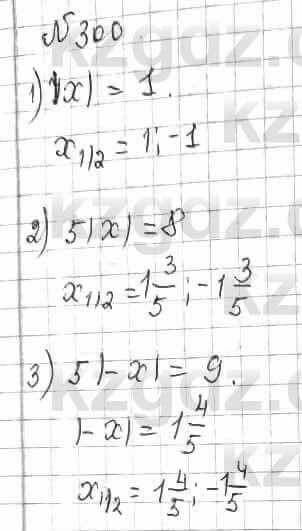 №300
1) |x| = 1.
x₁,₂ = 1; -1
2) 5|x| = 8
x₁,₂ = 1 3/5; -1 3/5
3) 5|-x| = 9.
|-x| = 1 4/5
x₁,₂ = 1 4/5; -1 4/5